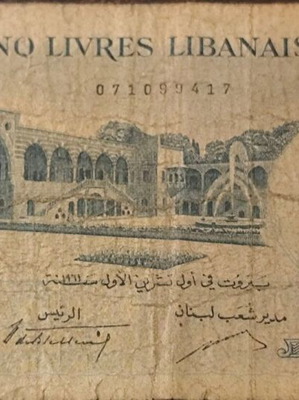 NQ LIVRES LIBANAIS
071099417
بيروت في أول تشرين الأول سنة ١٩٦١
مدير شعب لبنان الرئيس